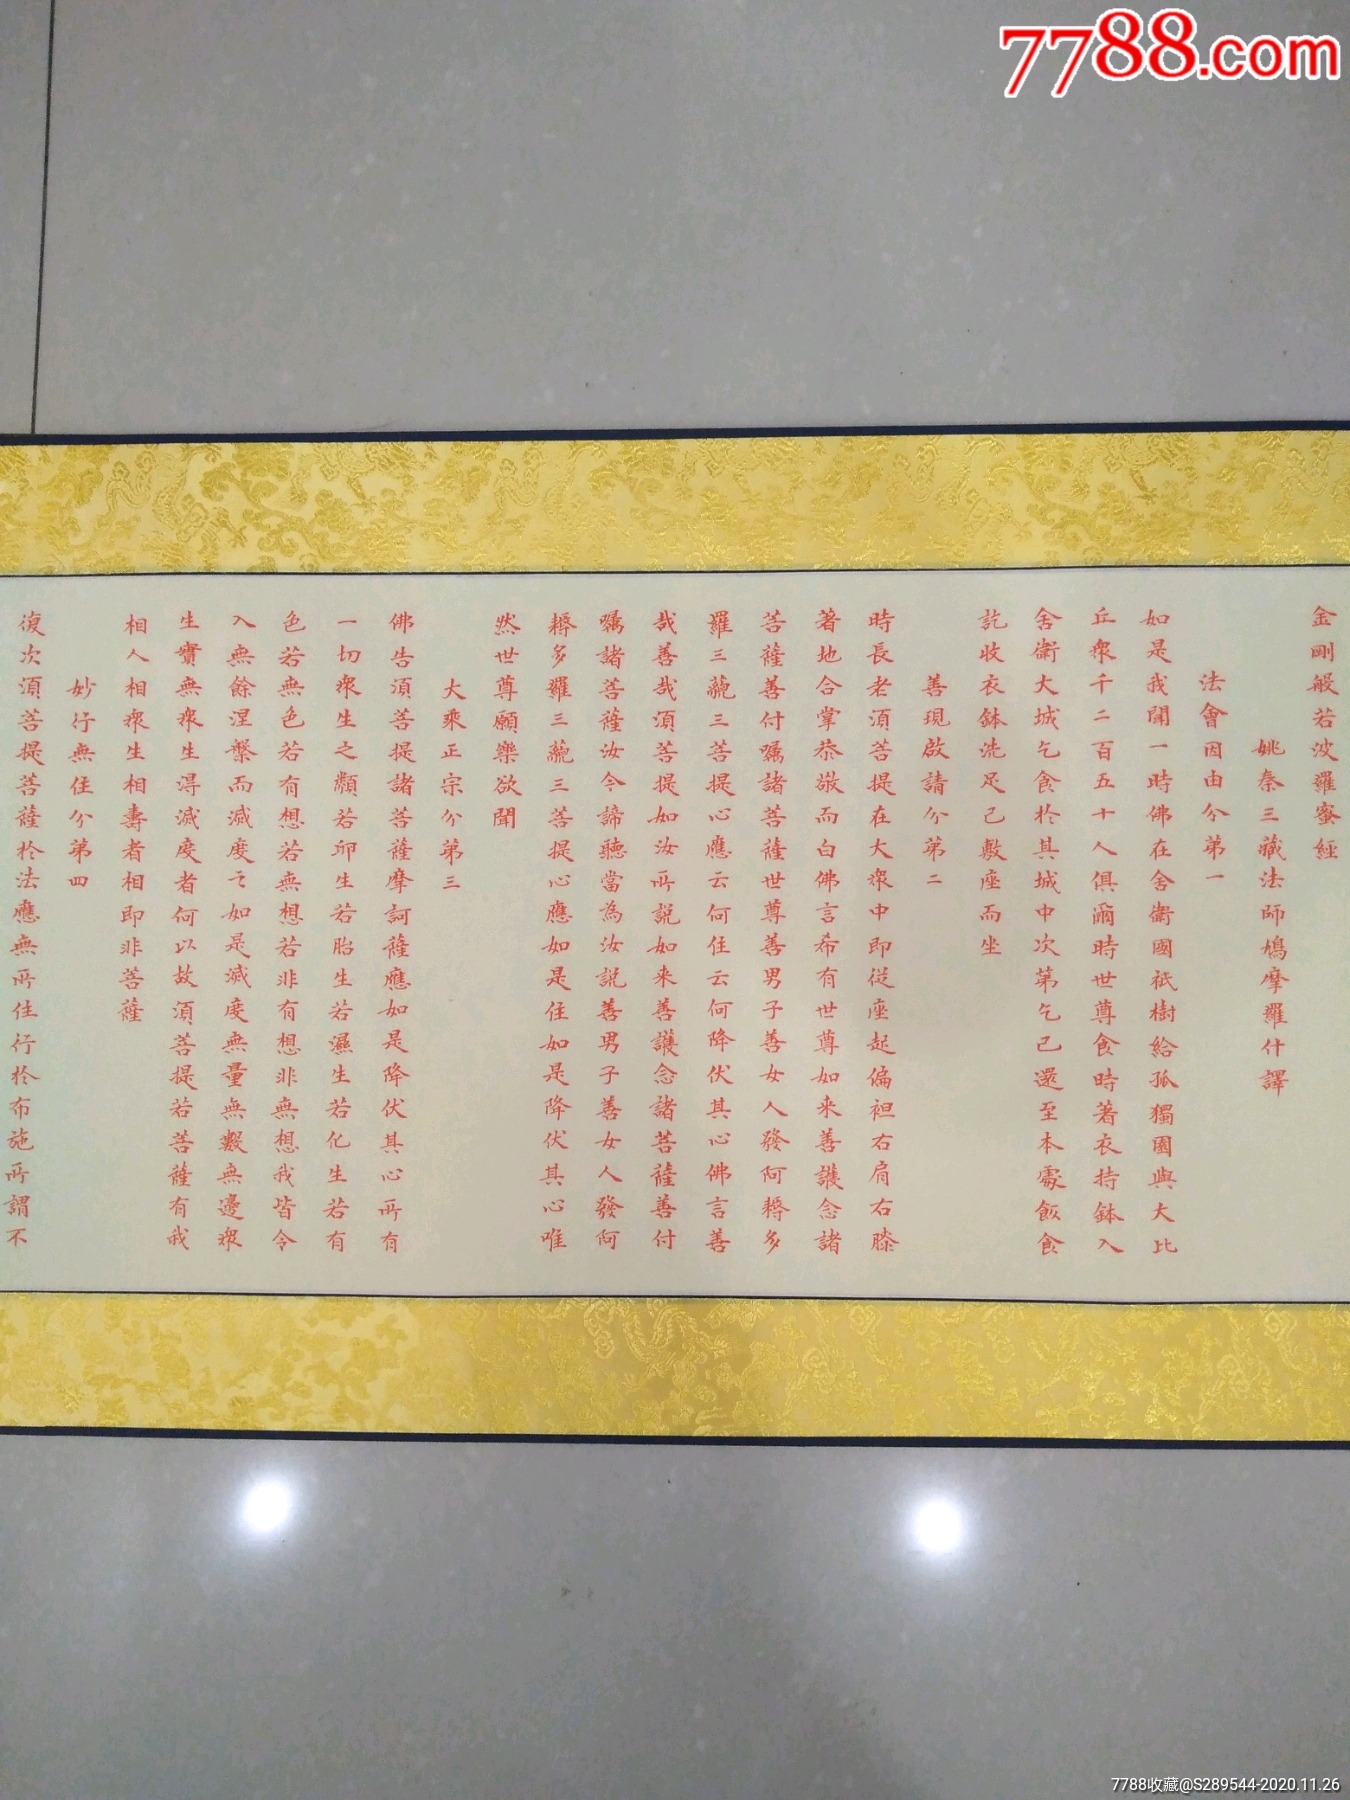 7788.com
金剛般若波羅蜜經
姚秦三藏法師鳩摩羅什譯
法會因由分第一
如是我聞一時佛在舍衛國祇樹給孤獨園與大比
丘眾千二百五十人俱爾時世尊食時著衣持鉢入
舍衛大城乞食於其城中次第乞已還至本處飯食
訖收衣鉢洗足已敷座而坐
善現啟請分第二
時長老須菩提在大眾中即從座起偏袒右肩右膝
著地合掌恭敬而白佛言希有世尊如来善護念諸
菩薩善付囑諸菩薩世尊善男子善女人發阿耨多
羅三藐三菩提心應云何住云何降伏其心佛言善
哉善哉須菩提如汝所說如来善護念諸菩薩善付
囑諸菩薩汝今諦聽當為汝說善男子善女人發阿
耨多羅三藐三菩提心應如是住如是降伏其心唯
然世尊願樂欲聞
大乘正宗分第三
佛告須菩提諸菩薩摩訶薩應如是降伏其心所有
一切眾生之類若卵生若胎生若濕生若化生若有
色若無色若有想若無想若非有想非無想我皆令
入無餘涅槃而滅度之如是滅度無量無數無邊眾
生實無眾生得滅度者何以故須菩提若菩薩有我
相人相眾生相壽者相即非菩薩
妙行無住分第四
復次須菩提菩薩於法應無所住行於布施所謂不
7788收藏@S289544-2020.11.26